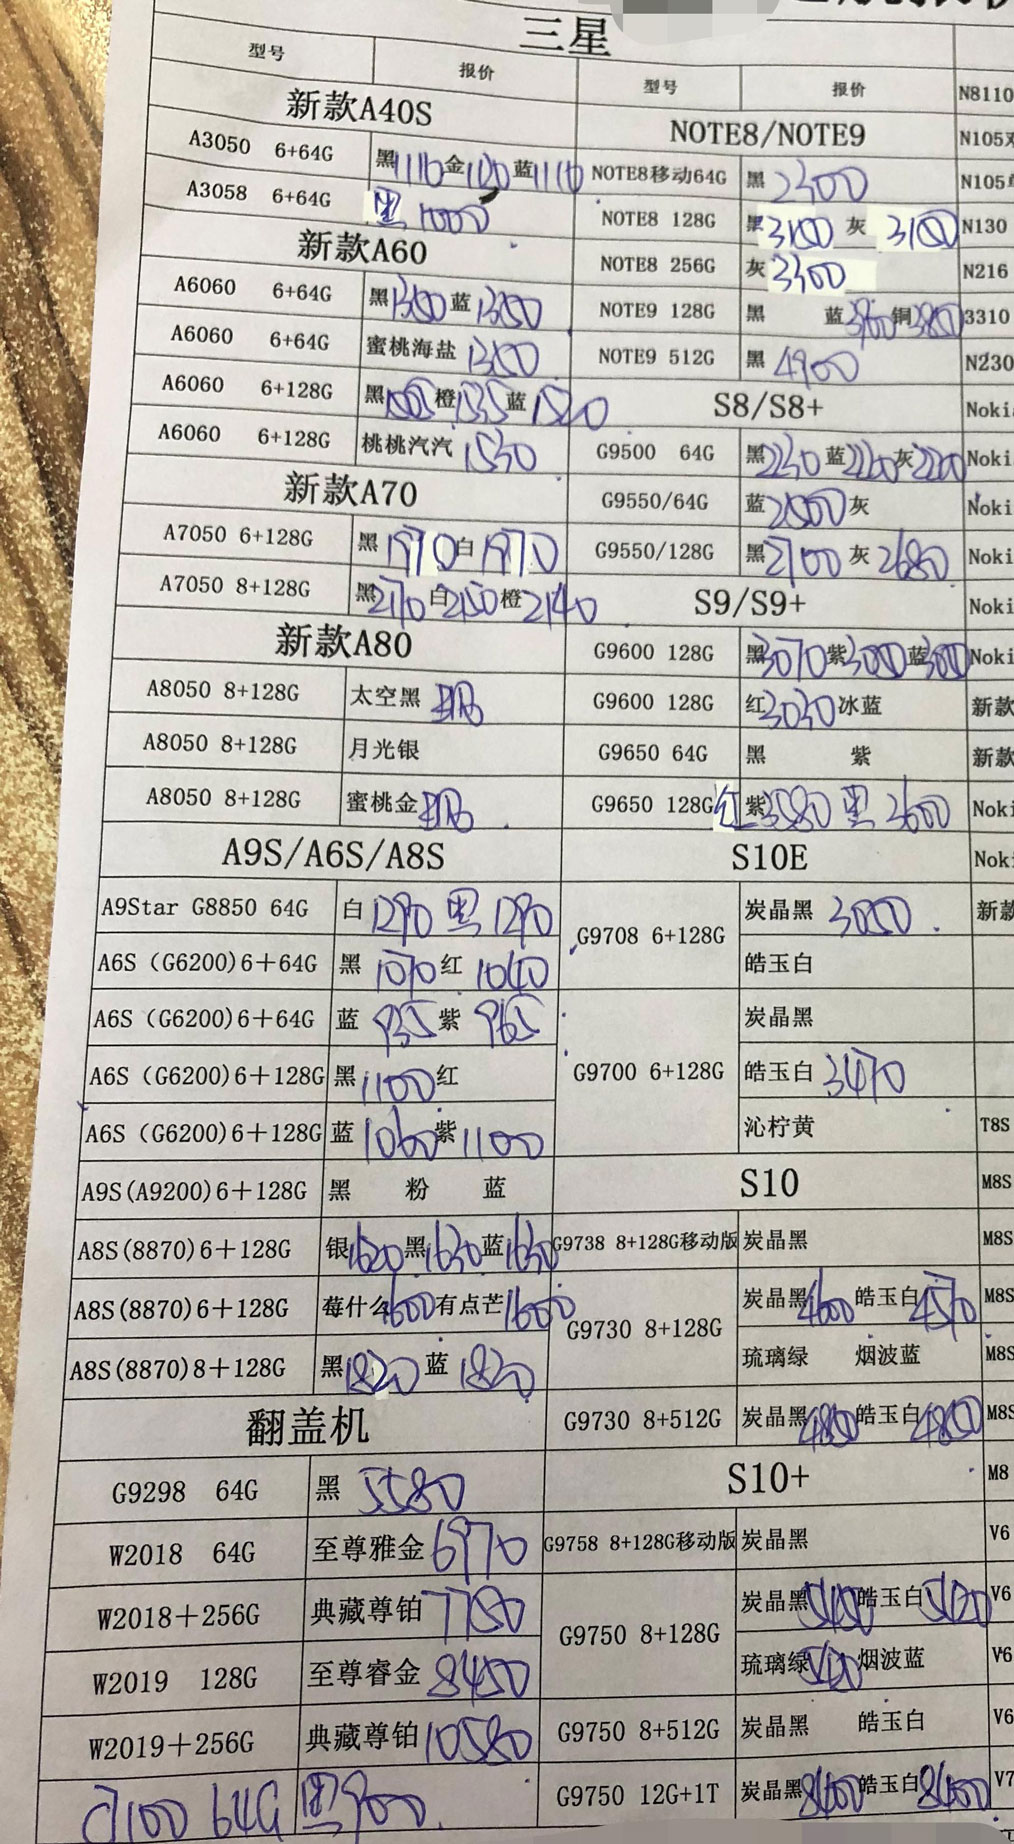 三星
型号 报价 型号 报价
新款A40S
A3050 6+64G 黑1110金 蓝1110
A3058 6+64G 黑 1000
新款A60
A6060 6+64G 黑1350蓝1350
A6060 6+64G 蜜桃海盐 1350
A6060 6+128G 黑 橙1535蓝1520
A6060 6+128G 桃桃汽汽 1530
新款A70
A7050 6+128G 黑1970白1970
A7050 8+128G 黑2170白2150橙2140
新款A80
A8050 8+128G 太空黑
A8050 8+128G 月光银
A8050 8+128G 蜜桃金
A9S/A6S/A8S
A9Star G8850 64G 白1290黑1290
A6S（G6200)6＋64G 黑 1070红 1040
A6S（G6200)6＋64G 蓝 935紫 965
A6S（G6200)6＋128G 黑1100红
A6S（G6200)6＋128G 蓝1060紫1100
A9S(A9200)6＋128G 黑 粉 蓝
A8S(8870)6＋128G 银1620黑1630蓝1630
A8S(8870)6＋128G 莓什么1600有点芒1600
A8S(8870)8＋128G 黑1820蓝1820
翻盖机
G9298 64G 黑 5580
W2018 64G 至尊雅金6970
W2018＋256G 典藏尊铂7750
W2019 128G 至尊睿金8450
W2019＋256G 典藏尊铂10580
64G 黑900
NOTE8/NOTE9
NOTE8移动64G 黑 2300
NOTE8 128G 黑3100 灰 3100
NOTE8 256G 灰3300
NOTE9 128G 黑 蓝 铜3850
NOTE9 512G 黑 4900
S8/S8+
G9500 64G 黑2230蓝2220灰2220
G9550/64G 蓝2500灰
G9550/128G 黑2700灰2680
S9/S9+
G9600 128G 黑3070紫3000蓝3000
G9600 128G 红3030冰蓝
G9650 64G 黑 紫
G9650 128G 红 紫3580黑 3600
S10E
G9708 6+128G 炭晶黑 3050
皓玉白
G9700 6+128G 炭晶黑
皓玉白 3470
沁柠黄
S10
G9738 8+128G移动版 炭晶黑
G9730 8+128G 炭晶黑4600皓玉白4570
琉璃绿 烟波蓝
G9730 8+512G 炭晶黑4850皓玉白4850
S10+
G9758 8+128G移动版 炭晶黑
G9750 8+128G 炭晶黑5450皓玉白5420
琉璃绿 烟波蓝
G9750 8+512G 炭晶黑 皓玉白
G9750 12G+1T 炭晶黑8400皓玉白8400
N8110
N105
N105
N130
N216
3310
N230
Noki
Noki
Noki
Noki
Noki
Noki
新款
新款
Noki
Noki
新款
T8S
M8S
M8S
M8S
M8S
M8S
M8
V6
V6
V6
V6
V7